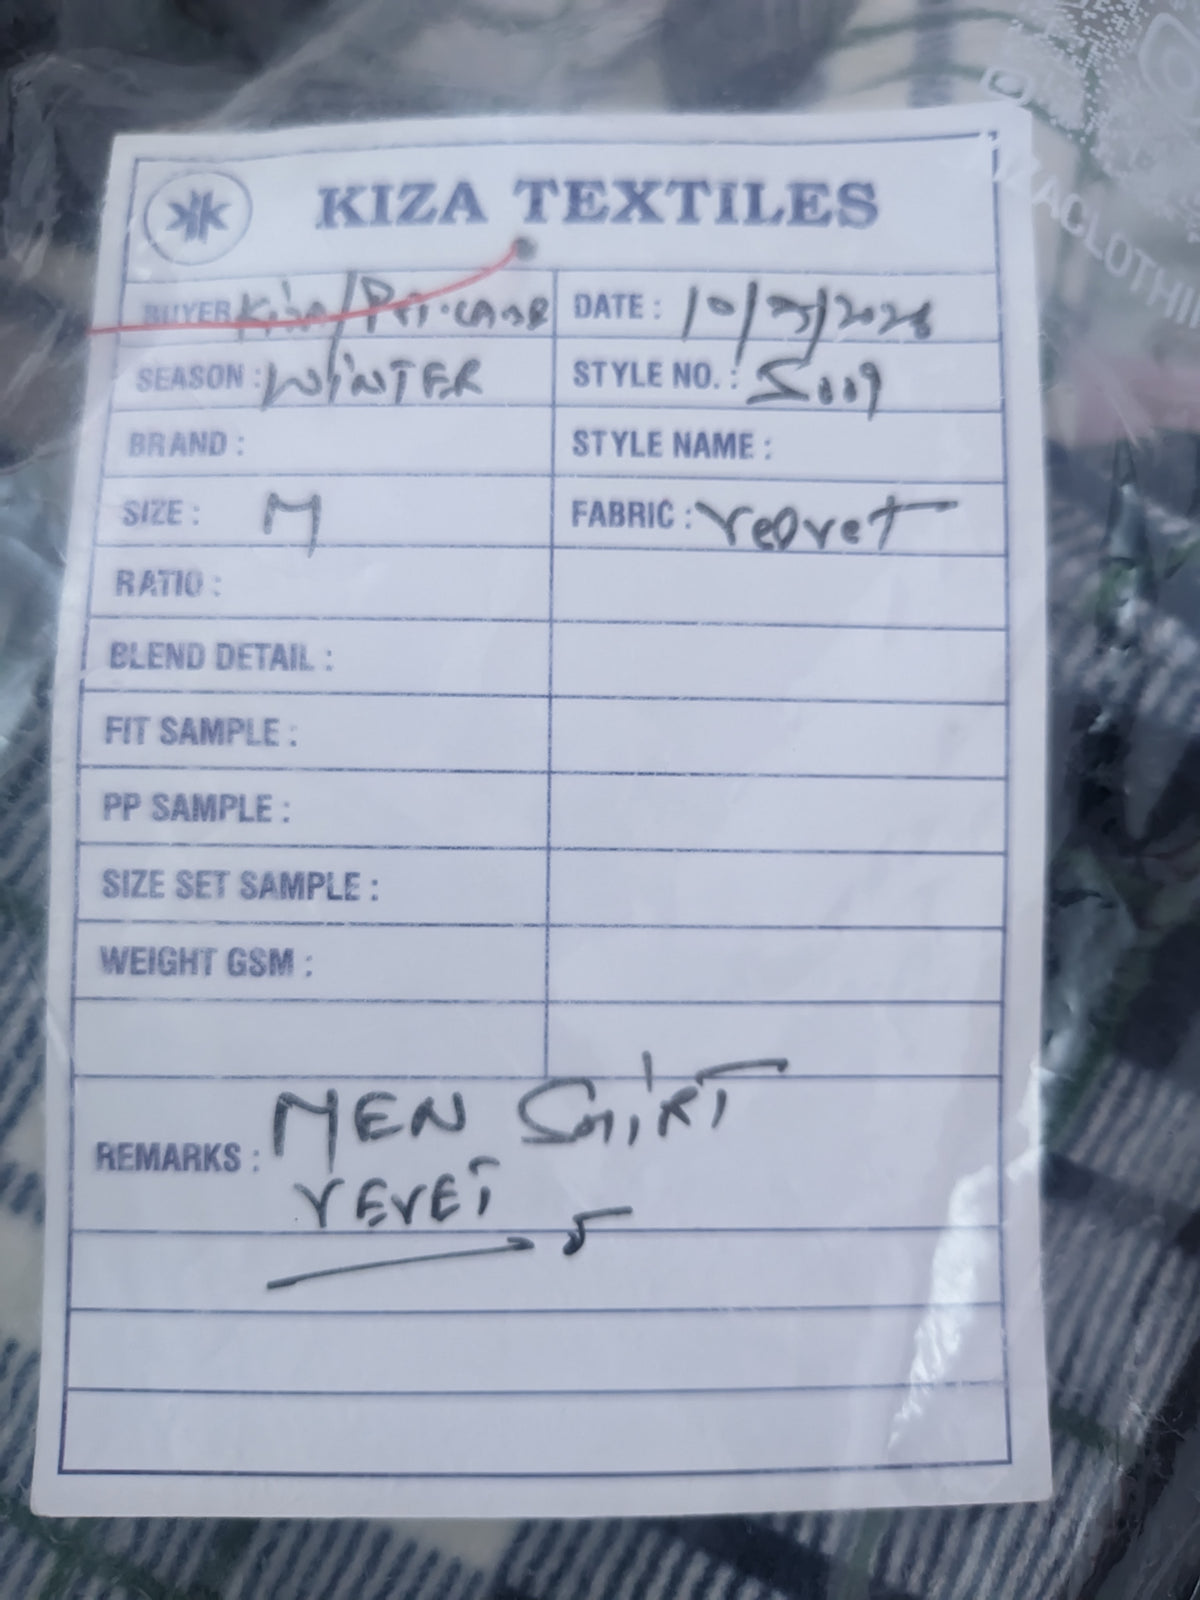 KIZA TEXTILES
BUYER Kiza/
DATE : 10/25/2026
SEASON : WINTER
STYLE NO. : S009
BRAND :
STYLE NAME :
SIZE : M
FABRIC : Velvet
RATIO :
BLEND DETAIL :
FIT SAMPLE :
PP SAMPLE :
SIZE SET SAMPLE :
WEIGHT GSM :
REMARKS : MEN SHIRT
VEVET
5